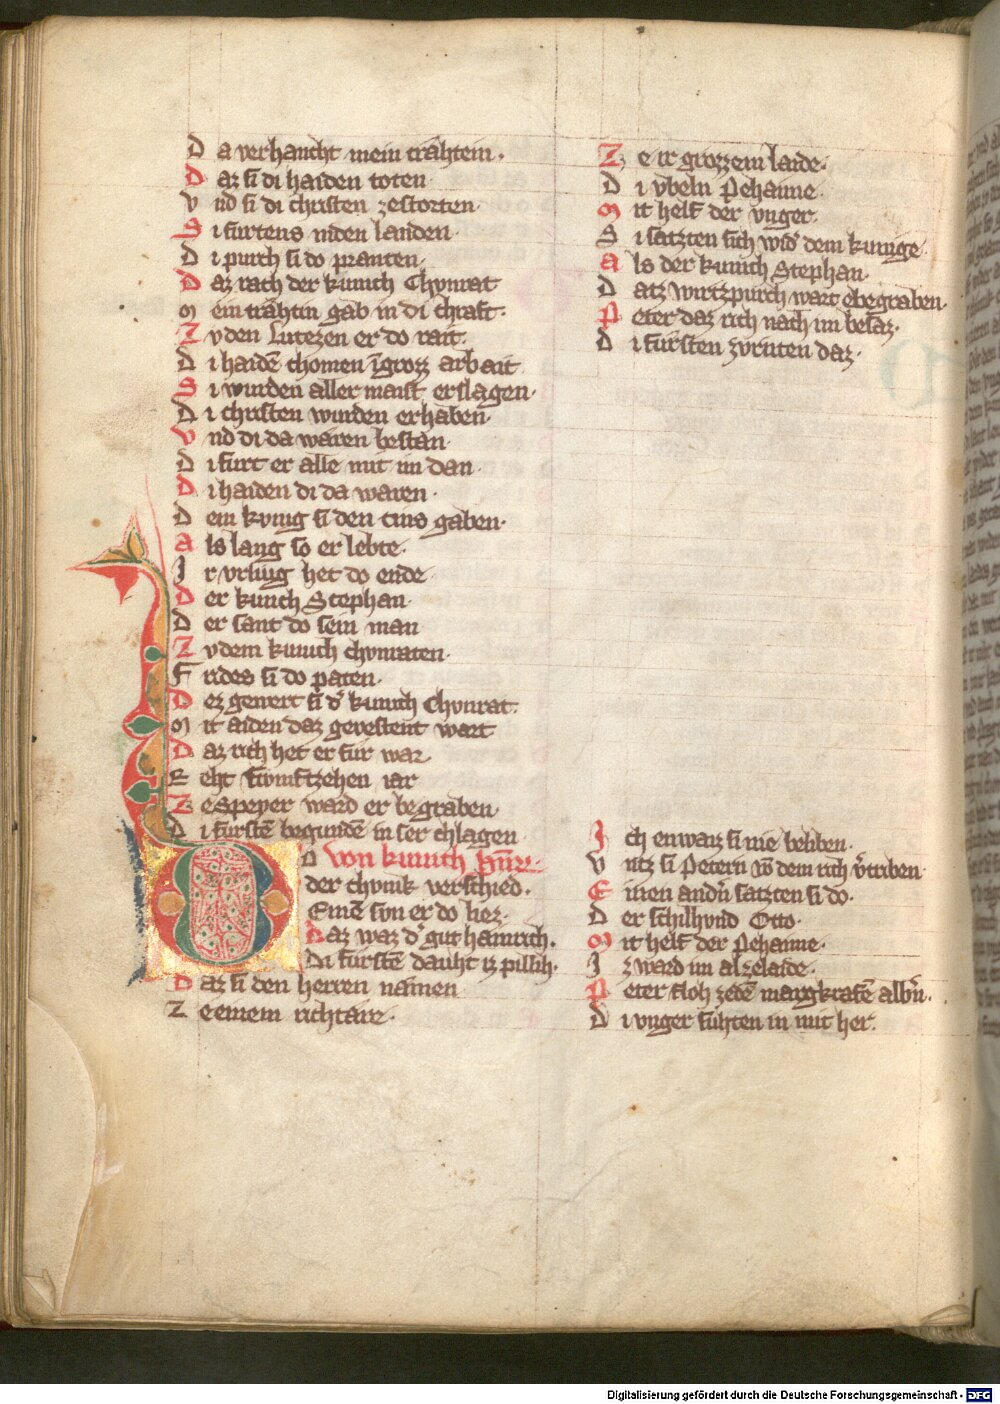 Da verhancht mein trähtein.
Daz si di haiden toten
Vnd si di christen zestorten
Si furtens in den landen
Di purch si do pranten.
Daz rach der kunich Chvnrat
Mein trähtin gab in di chraft.
Zv den Lutezen er do rait.
Di haidē chomen ī grozz arbait
Si wurden aller maist erslagen.
Di christen wurden erhaben.
Vnd di da waren bestan.
Di furt er alle mit im dan.
Di haiden di da waren.
Dem kvnig si den cins gaben.
Als lang so er lebte.
Ir vrliug het do ende.
Der kunich Stephan.
Der sant do sein man
Zv dem kunich chvnraten.
Frides si do paten.
Dez gewert si d' kunich Chvnrat.
Mit aiden daz gevestent wart
Daz rich het er fur war
Reht fumftzehen iar
Ze Speyer ward er begraben.
Di furstē begundē in ser chlagen
Von kunich
Do der chvnik verschied.
Einē svn er do liez.
Daz waz d' gut hainrich.
Di furstē dauht iz pillih.
Daz si den herren nämen
Ze einem richtäre.
Ze ir grozzem laide.
Di vbeln Pehaime.
Mit helf der vnger.
Si satzten sich wid' dem kunige.
Als der kunich Stephan.
Datz wirtzpurch wart ebegraben.
Peter daz rich nach im besaz.
Di fursten zvrnten daz.
Ich enwaiz si nie beliben.
Vntz si Petern vō dem rich v'triben.
Einen andn̄ satzten si do.
Der schilhvnd Otto.
Mit helf der Pehaime.
Iz ward im al ze laide.
Peter floh ze dē margkrafē albn̄.
Di vnger fuhten in mit her.
Digitalisierung gefördert durch die Deutsche Forschungsgemeinschaft - DFG